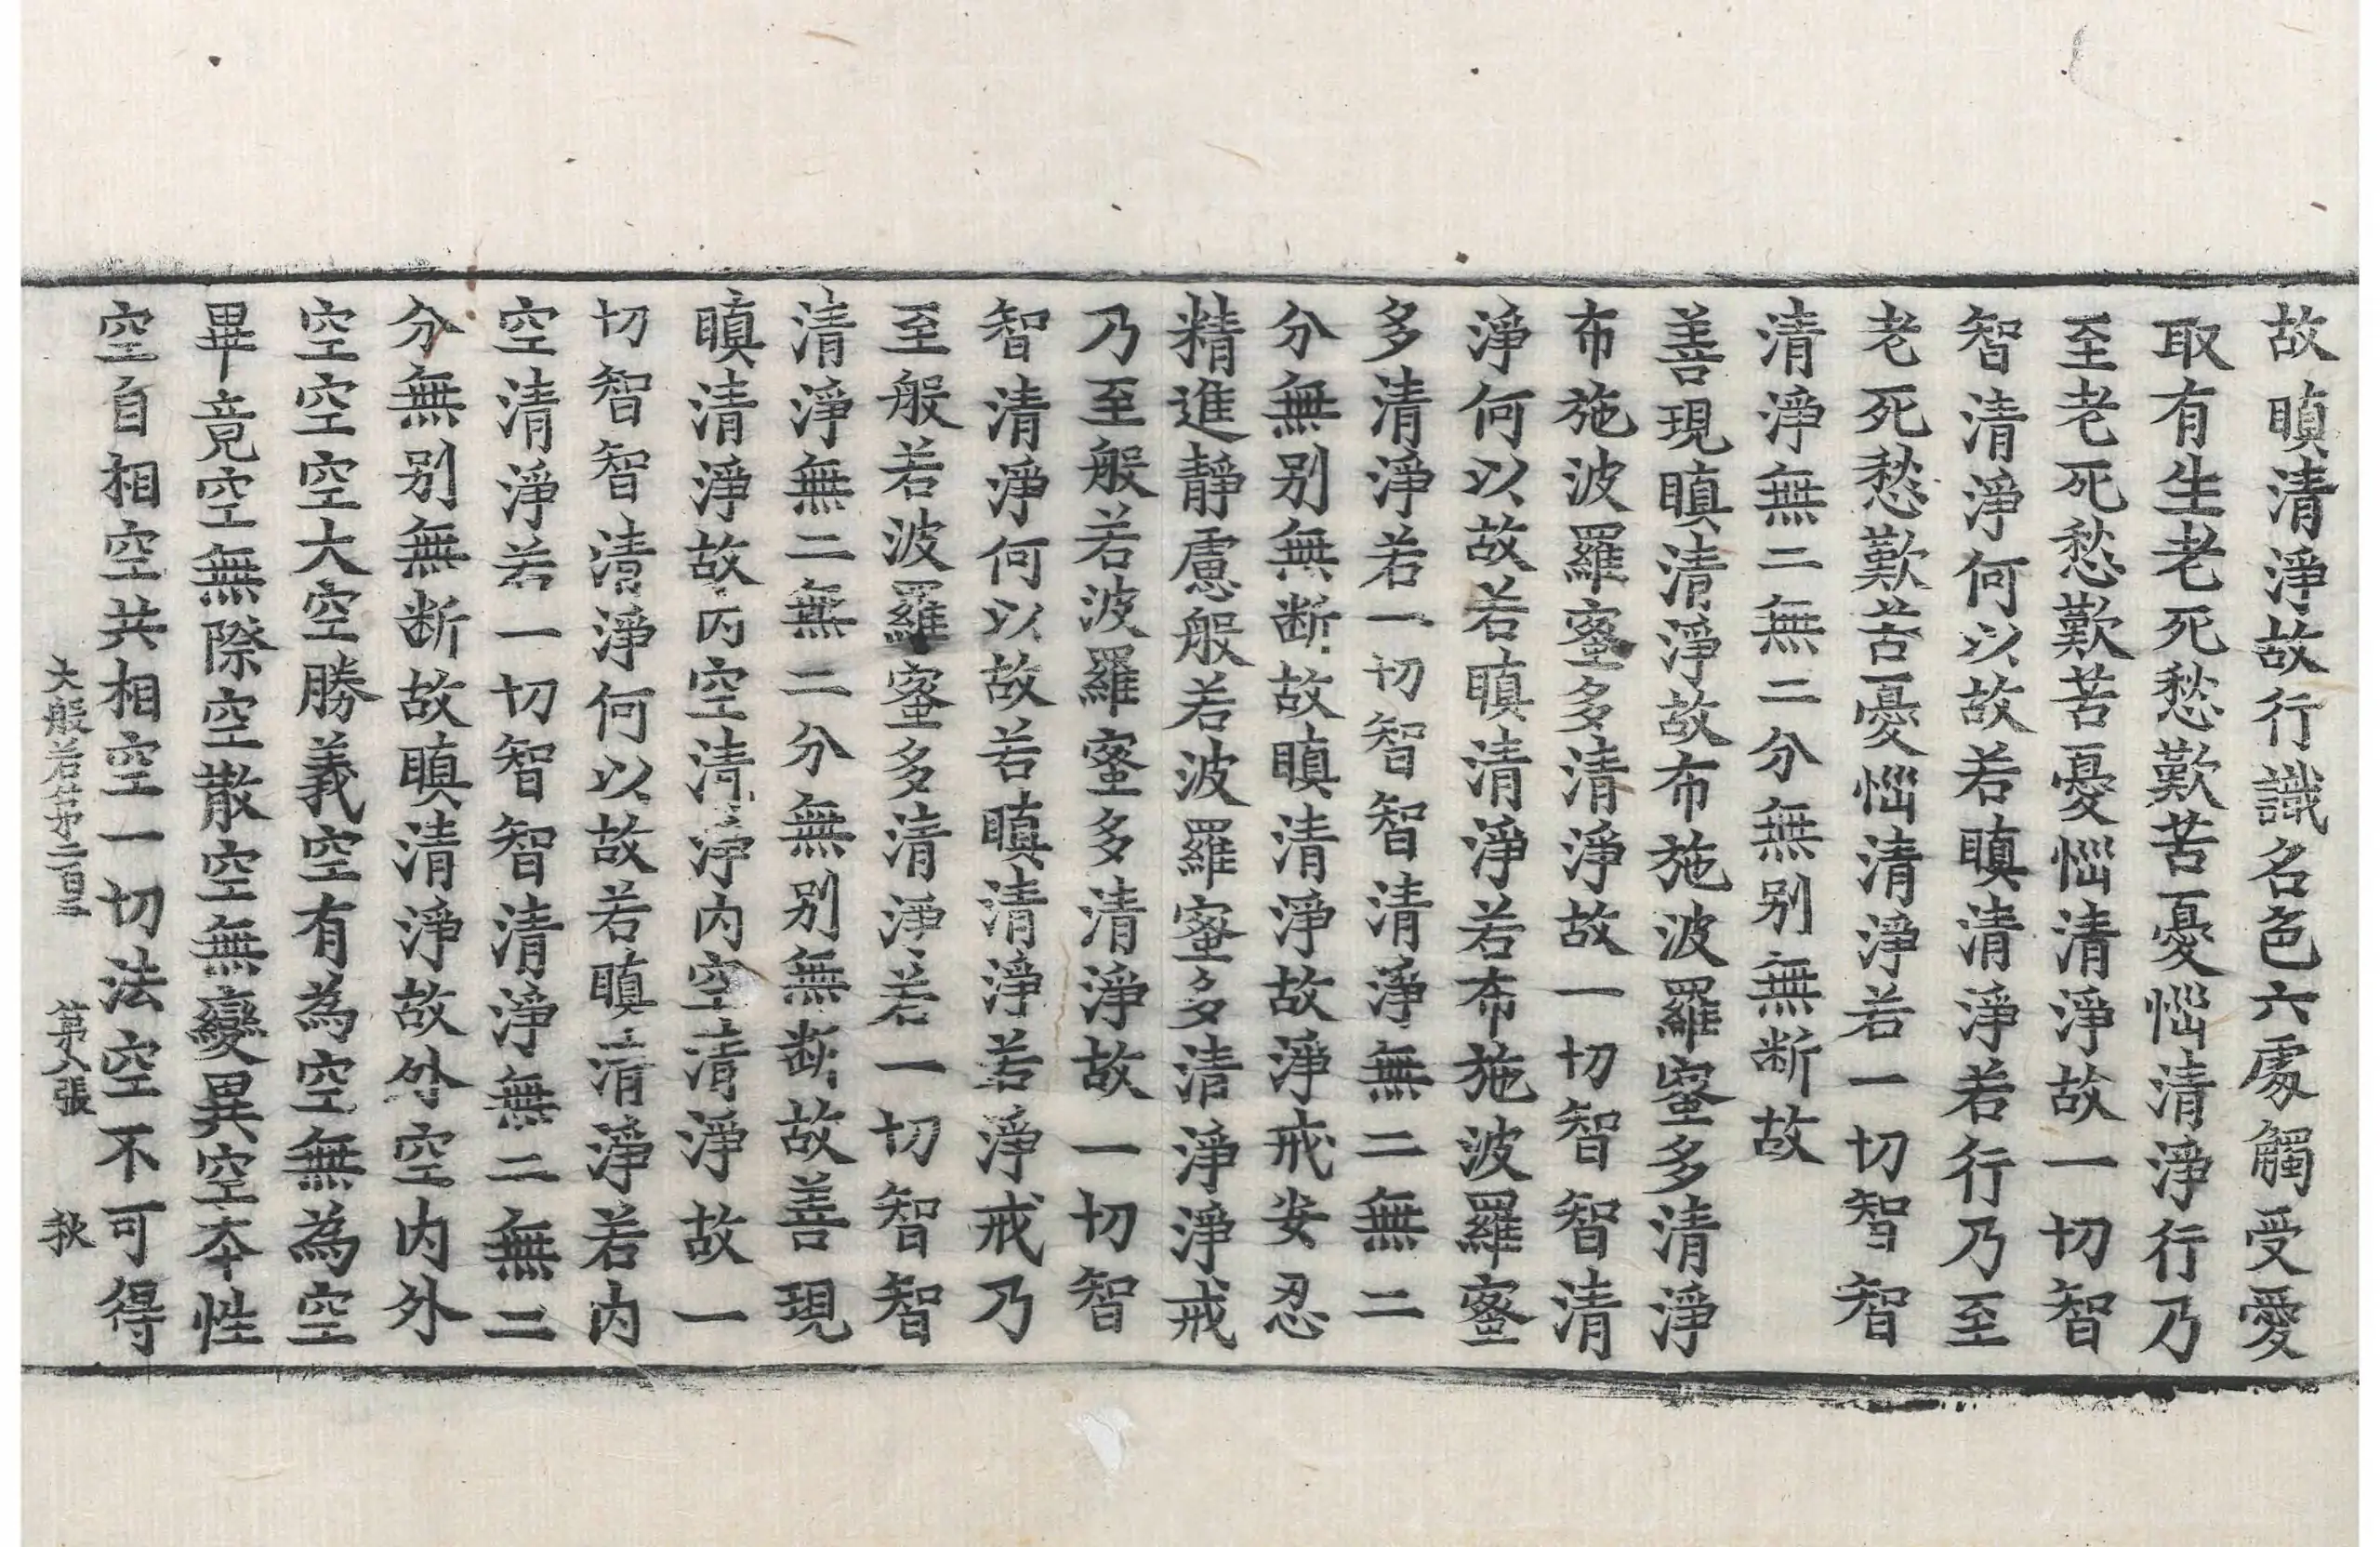 故瞋清淨故行識名色六處觸受愛
取有生老死愁歎苦憂惱清淨行乃
至老死愁歎苦憂惱清淨故一切智
智清淨何以故若瞋清淨若行乃至
老死愁歎苦憂惱清淨若一切智智
清淨無二無二分無別無斷故
善現瞋清淨故布施波羅蜜多清淨
布施波羅蜜多清淨故一切智智清
淨何以故若瞋清淨若布施波羅蜜
多清淨若一切智智清淨無二無二
分無別無斷故瞋清淨故淨戒安忍
精進靜慮般若波羅蜜多清淨淨戒
乃至般若波羅蜜多清淨故一切智
智清淨何以故若瞋清淨若淨戒乃
至般若波羅蜜多清淨若一切智智
清淨無二無二分無別無斷故善現
瞋清淨故內空清淨內空清淨故一
切智智清淨何以故若瞋清淨若內
空清淨若一切智智清淨無二無二
分無別無断故瞋清淨故外空內外
空空空大空勝義空有為空無為空
畢竟空無際空散空無變異空本性
空自相空共相空一切法空不可得
大般若第二百三 第八張 秋